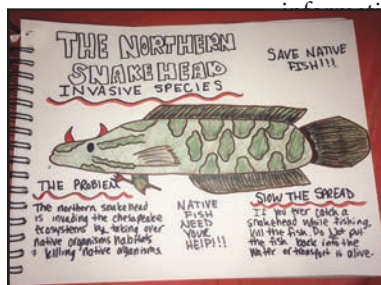 informati
THE NORTHERN
SNAKEHEAD
INVASIVE SPECIES
SAVE NATIVE
FISH!!!
THE PROBLEM
The northern snakehead
is invading the chesapeake
ecosystems by taking over
native organisms habitats
+ killing native organisms.
NATIVE
FISH
NEED
YOUR
HELP!!!
SLOW THE SPREAD
If you ever catch a
snakehead while fishing,
kill the fish. Do Not put
the fish back into the
water or transport it alive.